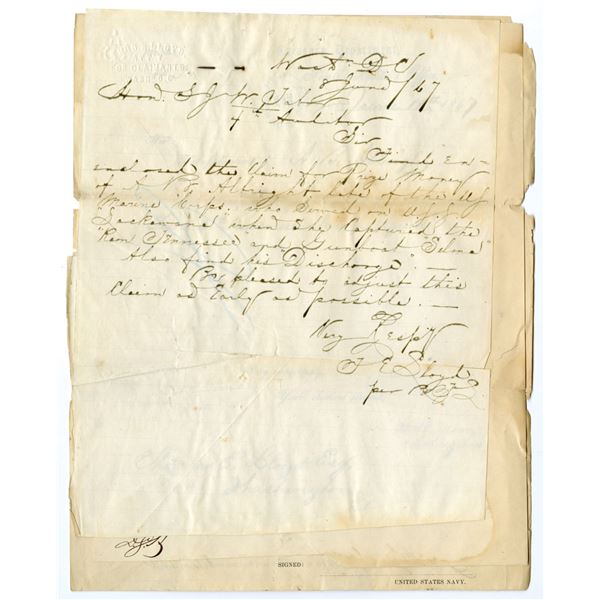 Wash D C
8 June /67
Hon. S J. W. Tabor
4th Auditor
Sir
Find en-
closed the Claim for Prize Money
of Albright late of the US
Marine Corps. who Served on U.S.S.
"Lackawana" when She Captured the
"Ram Tennessee" and Gunboat "Selma"
Also find his "Discharge" —
Be pleased to adjust this
Claim as Early as possible. —
Very Respy
Lloyd
per
SIGNED:
UNITED STATES NAVY.